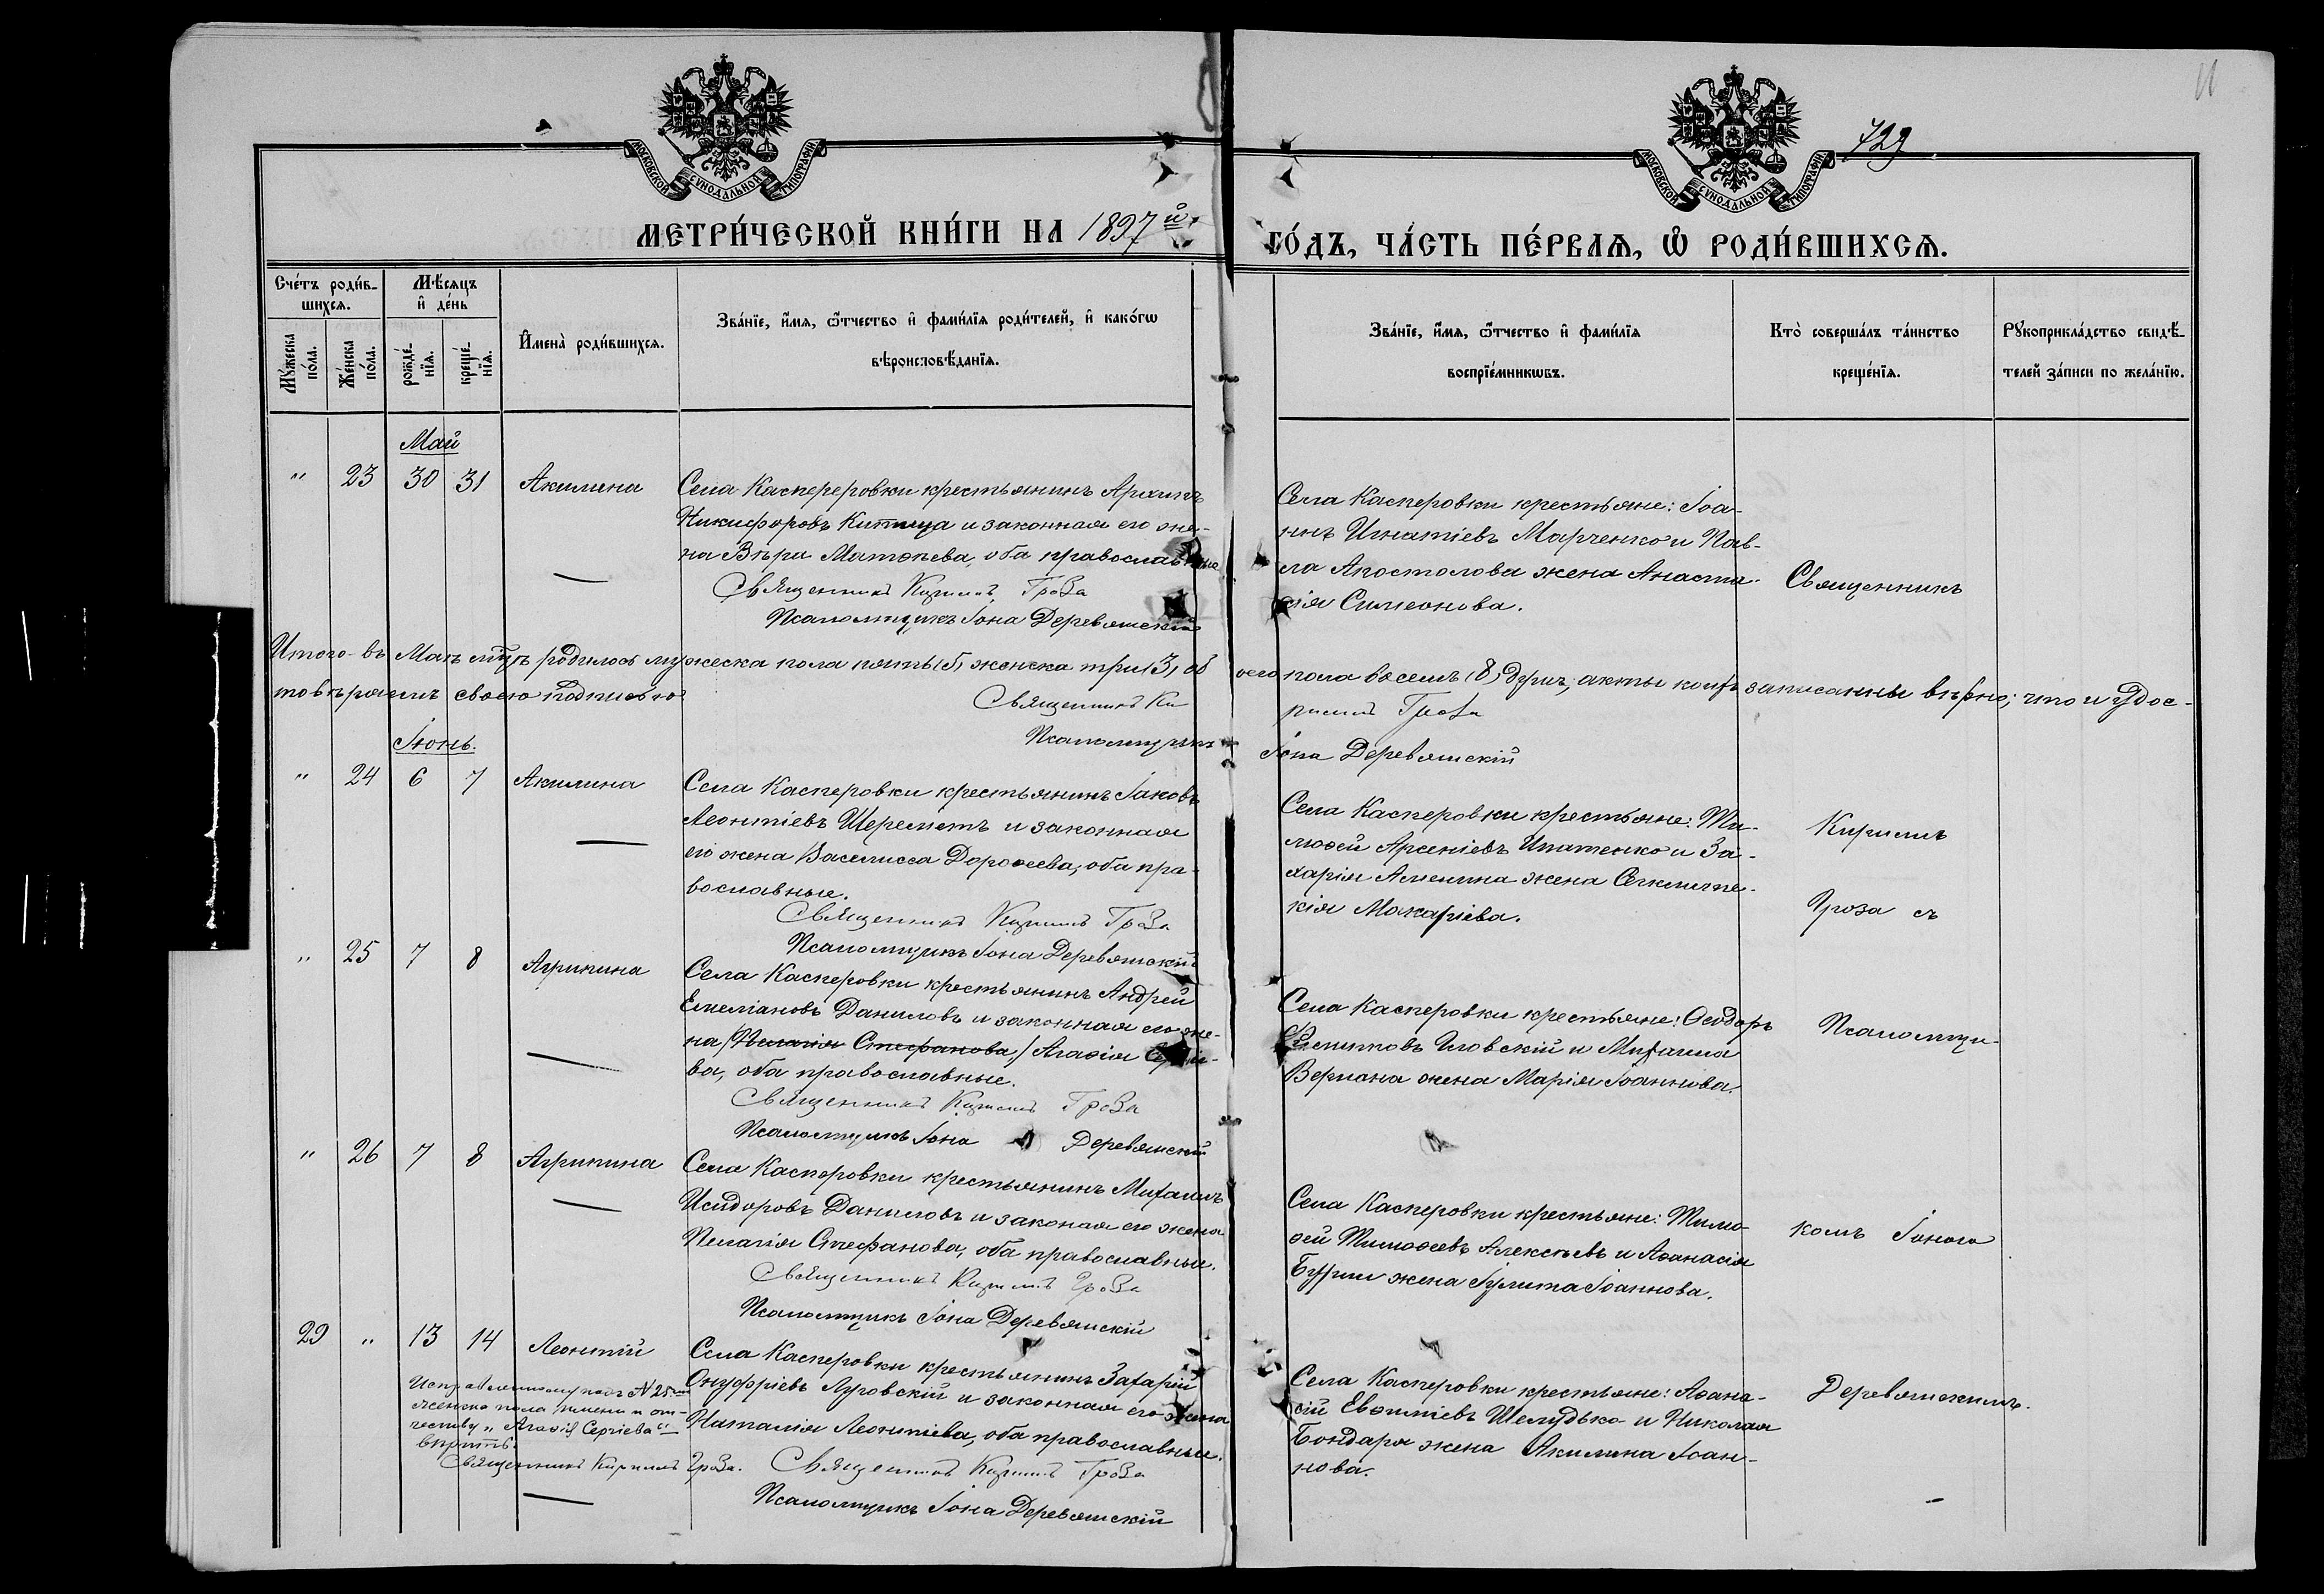 11
729
МОСКОВСКОЙ СѴНОДАЛЬНОЙ ТИПОГРАФІИ
МОСКОВСКОЙ СѴНОДАЛЬНОЙ ТИПОГРАФІИ
МЕТРИ́ЧЕСКОЙ КНИ́ГИ НА 1897й
ГО́ДЪ, ЧА́СТЬ ПЕ́РВАѦ, Ѽ РОДИ́ВШИХСѦ.
Сче́тъ роди́в-
шихсѧ.
Мѣ́сѧцъ
и҆ де́нь
Мꙋ́жеска по́ла.
Же́нска по́ла.
рожде́-
нїѧ.
креще́-
нїѧ.
И҆мена̀ роди́вшихсѧ.
Зва́нїе, и҆́мѧ, ѻ҆́тчество и҆ фами́лїѧ роди́телей, и҆ како́гѡ
вѣроисповѣ́данїѧ.
Зва́нїе, и҆́мѧ, ѻ҆́тчество и҆ фами́лїѧ
воспрїе́мникѡвъ.
Кто̀ соверша́лъ та́инство
креще́нїѧ.
Рꙋкоприкла́дство свидѣ́-
телей за́писи по жела́нїю.
Май
" 23 30 31 Акилина
Села Каспереровки крестьянинъ Архипъ
Никифоровъ Китица и законная его же-
на Вѣра Матѳеева, оба православные
Священникъ Кириллъ Гроза
Псаломщикъ Іона Деревянскій
Села Касперовки крестьяне: Іоа-
ннъ Игнатіевъ Марченко и Пав-
ла Апостолова жена Анаста-
сія Симеонова.
Священникъ
Итого въ Маѣ мцѣ родилось мужеска пола пять (5) женска три (3) об
оего пола восемь (8) душъ, акты коихъ записанны вѣрно; что и удос-
товѣряемъ своею подписью
Священникъ Ки
риллъ Гроза
Псаломщикъ
Іона Деревянскій
Іюнь.
" 24 6 7 Акилина
Села Касперовки крестьянинъ Іаковъ
Леонтіевъ Шереметъ и законная
его жена Василисса Дороѳеева, оба пра-
вославные.
Священникъ Кириллъ Гроза
Псаломщикъ Іона Деревянскій
Села Касперовки крестьяне: Ти-
моѳей Арсеніевъ Ипатенко и За-
харія жена
кія Макаріева.
Кириллъ
Гроза съ
" 25 7 8 Агрипина
Села Касперовки крестьянинъ Андрей
Емеліановъ Даниловъ и законная его же-
на /Пелагія Стефанова,/ Агаѳія Сергіе-
ва, оба православные.
Священникъ Кириллъ Гроза
Псаломщикъ Іона Деревянскій
Села Касперовки крестьяне: Ѳеодоръ
и Михаила
жена Марія Іоаннова.
Псаломщи-
" 26 7 8 Агрипина
Села Касперовки крестьянинъ Михаилъ
Исидоровъ Даниловъ и законая его жена
Пелагія Стефанова, оба православные.
Священникъ Кириллъ Гроза
Псаломщикъ Іона Деревянскій
Села Касперовки крестьяне: Тимо-
ѳей Тимоѳеевъ Алексѣевъ и Аѳанасія
жена Іулита Іоаннова.
комъ Іоною
29 " 13 14 Леонтій
Села Касперовки крестьянинъ Захарій
Онуфріевъ Луговскій и законная его жена
Наталія Леонтіева, оба православные.
Священникъ Кириллъ Гроза
Псаломщикъ Іона Деревянскій
Исправленному подъ № 25
женска пола имени и от-
честву „Агаѳія Сергіева"
вѣрить.
Священникъ Кириллъ Гроза.
Села Касперовки крестьяне: Аѳана-
сій Евѳиміевъ Шелудько и Николая
Бондаря жена Акилина Іоан-
нова.
Деревянскимъ.